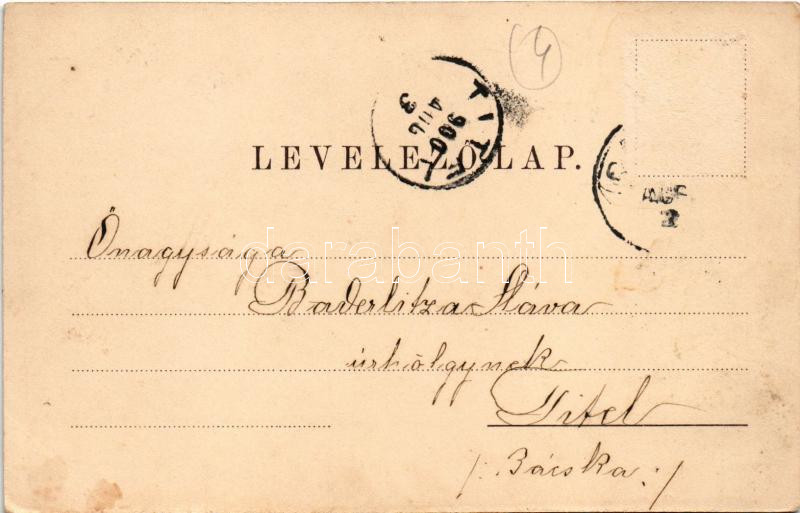 4
TITEL
900
AUG
3
LEVELEZŐ LAP.
AUG
2
Őnagysága
Baderlitza Sláva
úrhölgynek
Titel
/: Bácska :/
darabanth